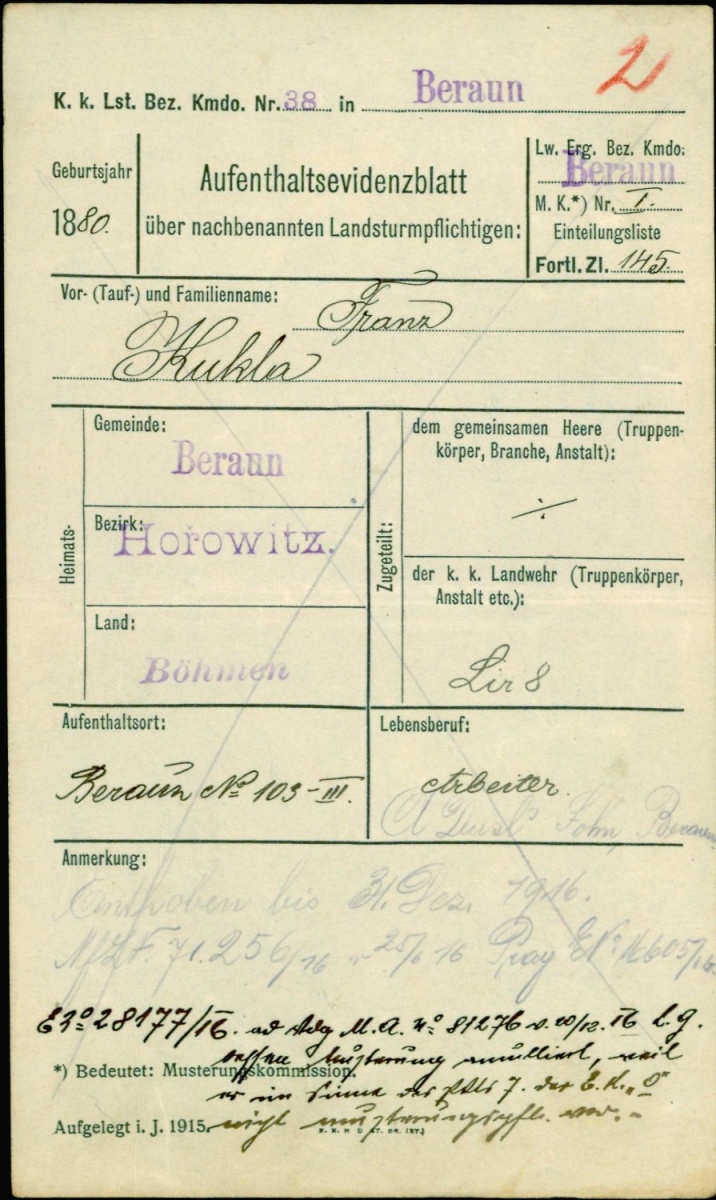 2
K. k. Lst. Bez. Kmdo. Nr. 38 in Beraun
Geburtsjahr
1880.
Aufenthaltsevidenzblatt
über nachbenannten Landsturmpflichtigen:
Lw. Erg. Bez. Kmdo:
Beraun
M. K.*) Nr. I.
Einteilungsliste
Fortl. Zl. 145.
Vor- (Tauf-) und Familienname: Franz
Kukla
Heimats-
Gemeinde:
Beraun
Bezirk:
Hořowitz.
Land:
Böhmen
Zugeteilt:
dem gemeinsamen Heere (Truppen-
körper, Branche, Anstalt):
÷
der k. k. Landwehr (Truppenkörper,
Anstalt etc.):
Lir 8
Aufenthaltsort:
Beraun No 103-III.
Lebensberuf:
Arbeiter.
Sohn, Beraun
Anmerkung:
Enthoben bis 31. Dez. 1916.
71.256/16 v 25/6 16 Prag
28177/16. M. A. No 81276 v. 20/12. 16
dessen Musterung annulliert, weil
er im Sinne des 7. der "O"
*) Bedeutet: Musterungskommission.
nicht war.-
Aufgelegt i. J. 1915.